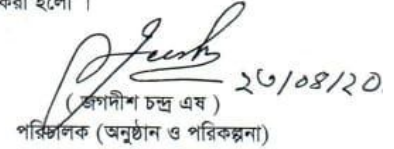 করা হলো ।
২৩/০৪/২০
( জগদীশ চন্দ্র এষ )
পরিচালক (অনুষ্ঠান ও পরিকল্পনা)